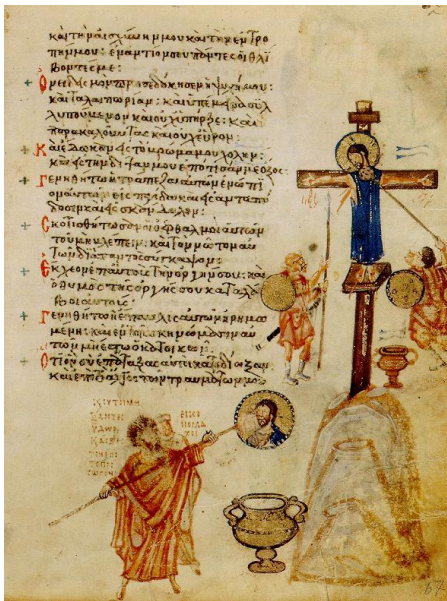 καὶ τὴν αἰσχύνην μου καὶ τὴν ἐντρο
πήν μου· ἐναντίον σου πάντες οἱ θλί
βοντές με·
Ὀνειδισμὸν προσεδόκησεν ἡ ψυχή μου·
καὶ ταλαιπωρίαν· καὶ ὑπέμεινα συλ
λυπούμενον καὶ οὐχ ὑπῆρξε· καὶ
παρακαλοῦντας καὶ οὐχ εὗρον·
Καὶ ἔδωκαν εἰς τὸ βρῶμά μου χολήν·
καὶ εἰς τὴν δίψαν μου ἐπότισάν με ὄξος·
Γενηθήτω ἡ τράπεζα αὐτῶν ἐνώπι
ον αὐτῶν εἰς παγίδα· καὶ εἰς ἀνταπό
δοσιν καὶ εἰς σκάνδαλον·
Σκοτισθήτωσαν οἱ ὀφθαλμοὶ αὐτῶν
τοῦ μὴ βλέπειν· καὶ τὸν νῶτον αὐ
τῶν διὰ παντὸς σύγκαμψον·
Ἔκχεον ἐπ' αὐτοὺς τὴν ὀργήν σου· καὶ
ὁ θυμὸς τῆς ὀργῆς σου καταλά
βοι αὐτούς·
Γενηθήτω ἡ ἔπαυλις αὐτῶν ἠρημω
μένη· καὶ ἐν τοῖς σκηνώμασιν αὐ
τῶν μὴ ἔστω ὁ κατοικῶν·
Ὅτι ὃν σὺ ἐπάταξας αὐτοὶ κατεδίωξαν
καὶ ἐπὶ τὸ ἄλγος τῶν τραυμάτων μου
67